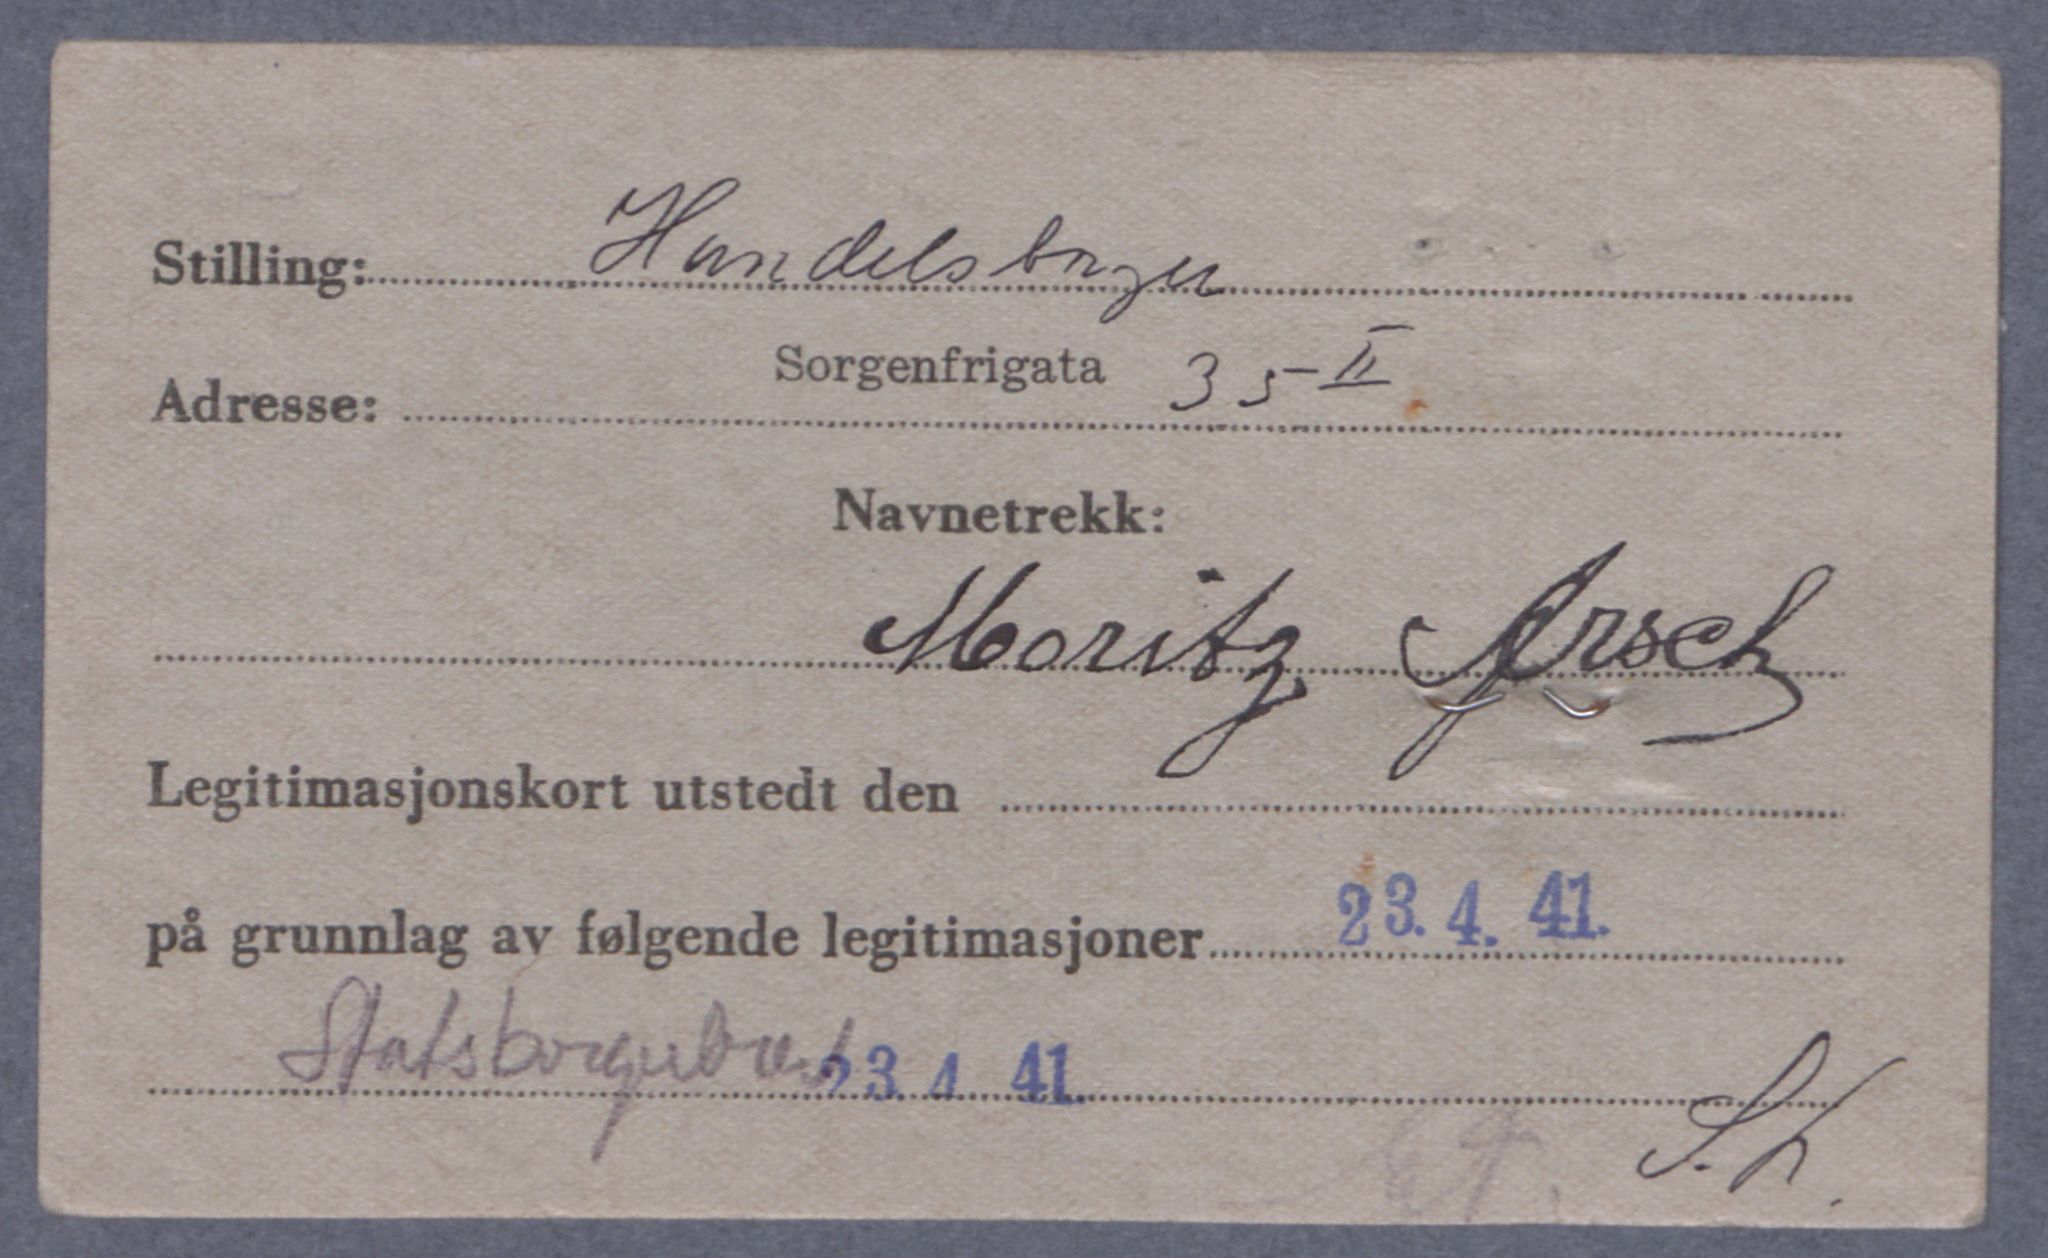 Stilling: Handelsborger
Adresse: Sorgenfrigata 35-II
Navnetrekk:
Moritz Arsch
Legitimasjonskort utstedt den
på grunnlag av følgende legitimasjoner 23.4.41.
Statsborgerbrev 23.4.41.